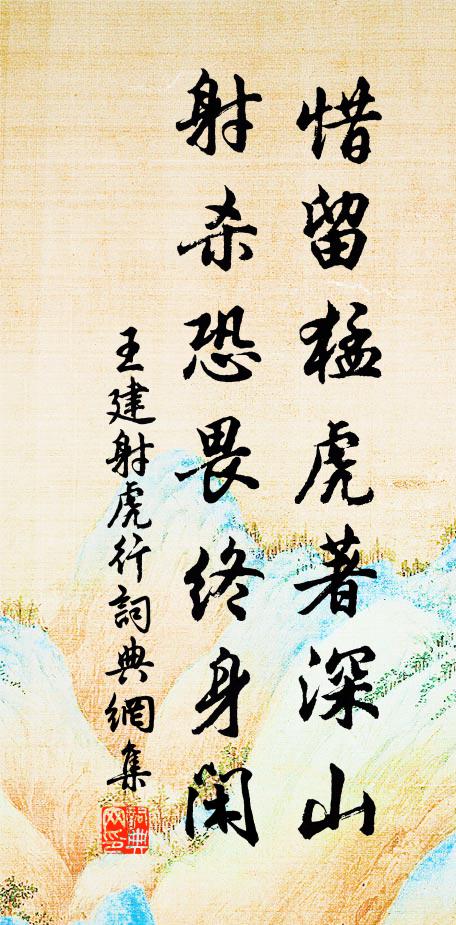 惜留猛虎著深山
射杀恐畏终身閑
王建射虎行詞典網集